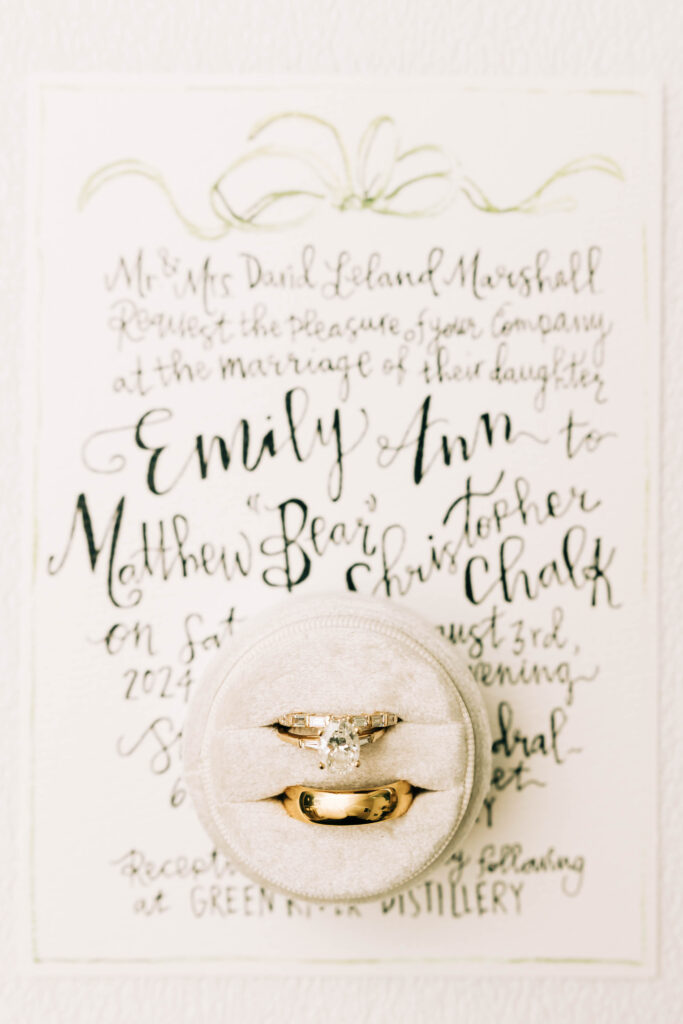 Mr & Mrs David Leland Marshall
Request the pleasure of your Company
at the marriage of their daughter
Emily Ann to
Matthew "Bear" Christopher
Chalk
on Sat ust 3rd,
2024 vening
dral
et
Recept y following
at GREEN RIVER DISTILLERY